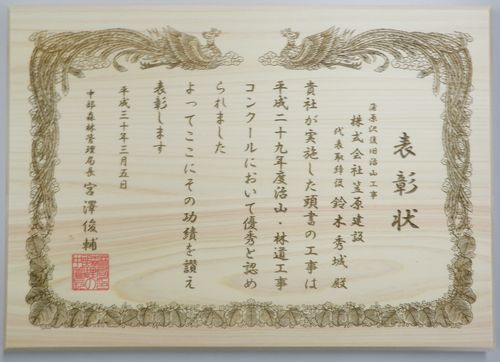 表彰状
蒲原沢復旧治山工事
株式会社笠原建設
代表取締役 鈴木秀城 殿
貴社が実施した頭書の工事は
平成二十九年度治山・林道工事
コンクールにおいて優秀と認め
られました
よってここにその功績を讃え
表彰します
平成三十年三月五日
中部森林管理局長 宮澤俊輔